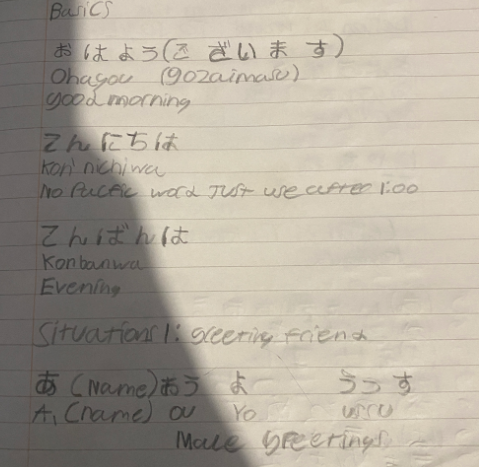 Basics
おはよう(ございます)
Ohayou (gozaimasu)
good morning
こんにちは
Kon'nichiwa
No Pacific word Just use after 1:00
こんばんは
Konbanwa
Evening
Situations 1: greeting friend
あ (Name) おう よ うっす
A, (name) ou Yo ussu
Male Greetings